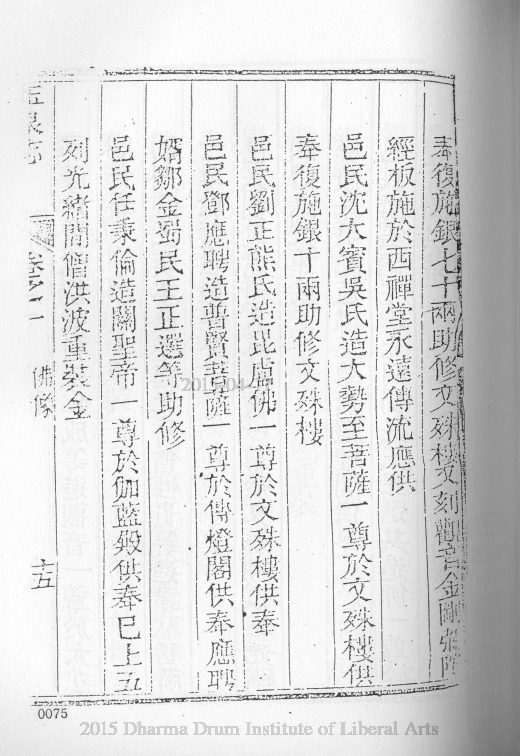 奉復施銀七十兩助修文殊樓又刻觀音金剛
經板施於西禪堂永遠傳流應供
邑民沈大賓吳氏造大勢至菩薩一尊於文殊樓供
奉復施銀十兩助修文殊樓
邑民劉正熊氏造毘盧佛一尊於文殊樓供奉
邑民鄧應聘造普賢菩薩一尊於傳燈閣供奉應聘
婿鄒金蜀民王正選等助修
邑民任秉倫造關聖帝一尊於伽藍殿供奉巳上五
列光緒間僧洪波重裝金
卷之一 佛像 十五
0075
2015 Dharma Drum Institute of Liberal Arts